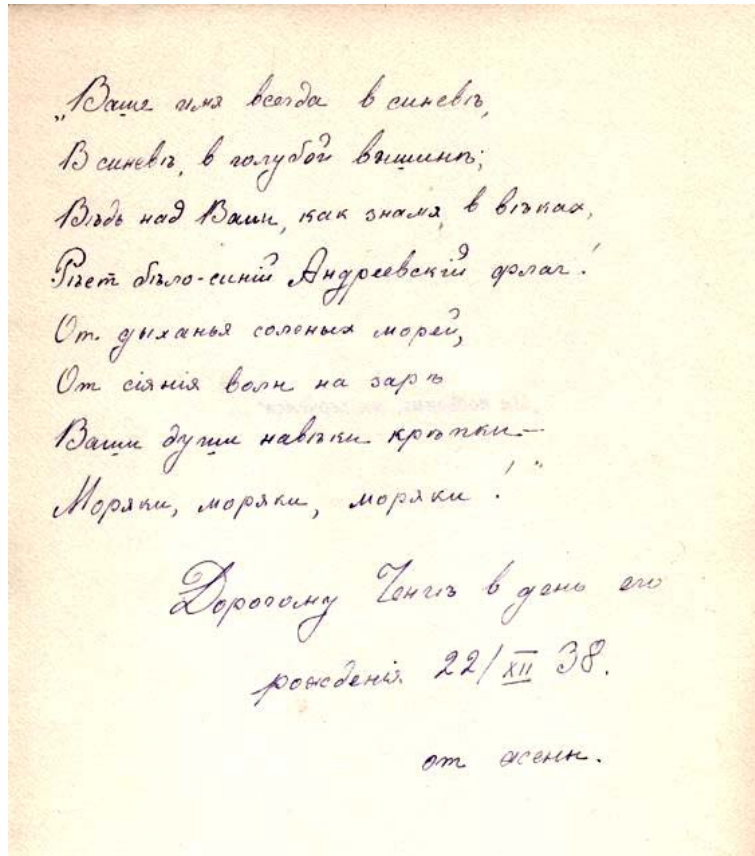 „Ваше имя всегда в синевѣ,
В синевѣ, в голубой вышинѣ;
Вѣдь над Вами, как знамя в вѣках,
Рѣет бѣло-синій Андреевскій флаг!
От дыханья соленых морей,
От сіянія волн на зарѣ
Ваши души навѣки крѣпки —
Моряки, моряки, моряки!"
Дорогому в день его
рожденія 22/XII 38.
от жены.